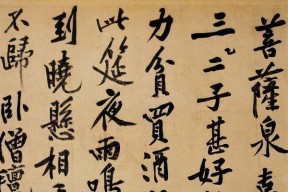 菩薩泉
三二子甚好
力貧買酒
此筵夜雨鳴
到曉懸相
不歸臥僧氊